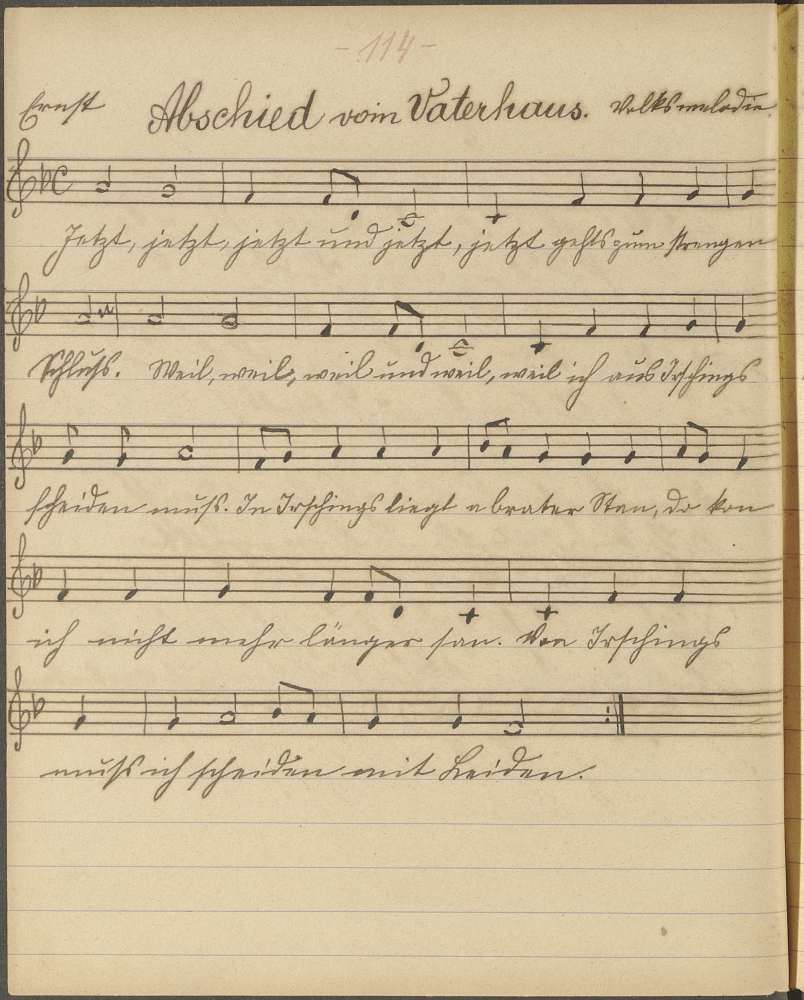 - 114 -
Ernst Abschied vom Vaterhaus. Volksmelodie.
Jetzt, jetzt, jetzt und jetzt, jetzt gehts zum strengen
Schluss. Weil, weil, weil und weil, weil ich aus Irschings
scheiden muss. In Irschings liegt a brater Stan, do kon
ich nicht mehr länger san. Von Irschings
muss ich scheiden mit Leiden.